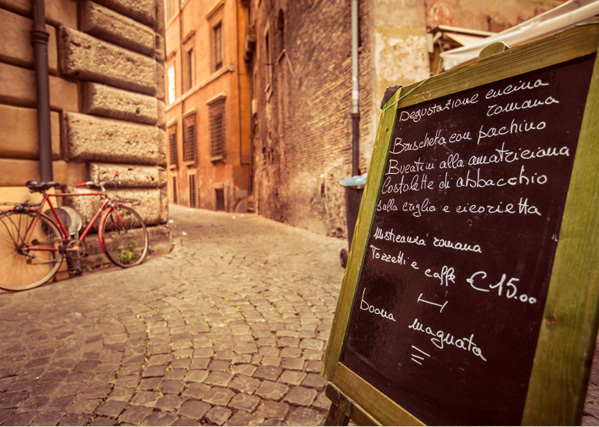 Degustazione cucina
romana
Bruschetta con pachino
Bucatini alla amatriciana
Costolette di abbacchio
sulla griglia e cicorietta
Misticanza romana
Tozzetti e caffe €15.00
buona magnata